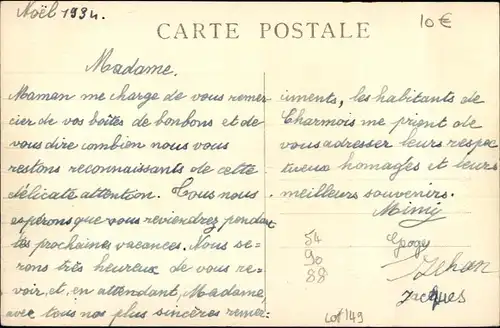 Noël 1934.
CARTE POSTALE
10€
Madame.
Maman me charge de vous remer-
cier de vos boîtes de bonbons et de
vous dire combien nous vous
restons reconnaissants de cette
délicate attention. Tous nous
espérons que vous reviendrez pendant
les prochaines vacances. Nous se-
rons très heureux de vous re-
voir, et, en attendant, Madame,
avec tous nos plus sincères remer-
ciments, les habitants de
Charmois me prient de
vous adresser leurs respec
tueux homages et leurs
meilleurs souvenirs.
Mimy
54
90
88
Jehan
Jacques
Lot 149